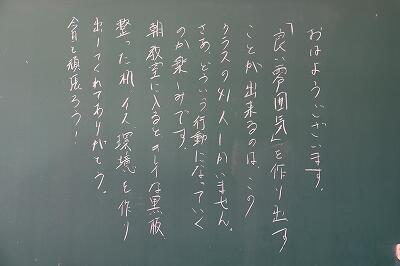 おはようございます。
「良い雰囲気」を作り出す
ことが出来るのは、この
クラスの41人しかいません。
さあ、どういう行動になっていく
のか楽しみです。
朝教室に入るとキレイな黒板
整った机、イス環境を作り
出してくれてありがとう。
今日も頑張ろう！